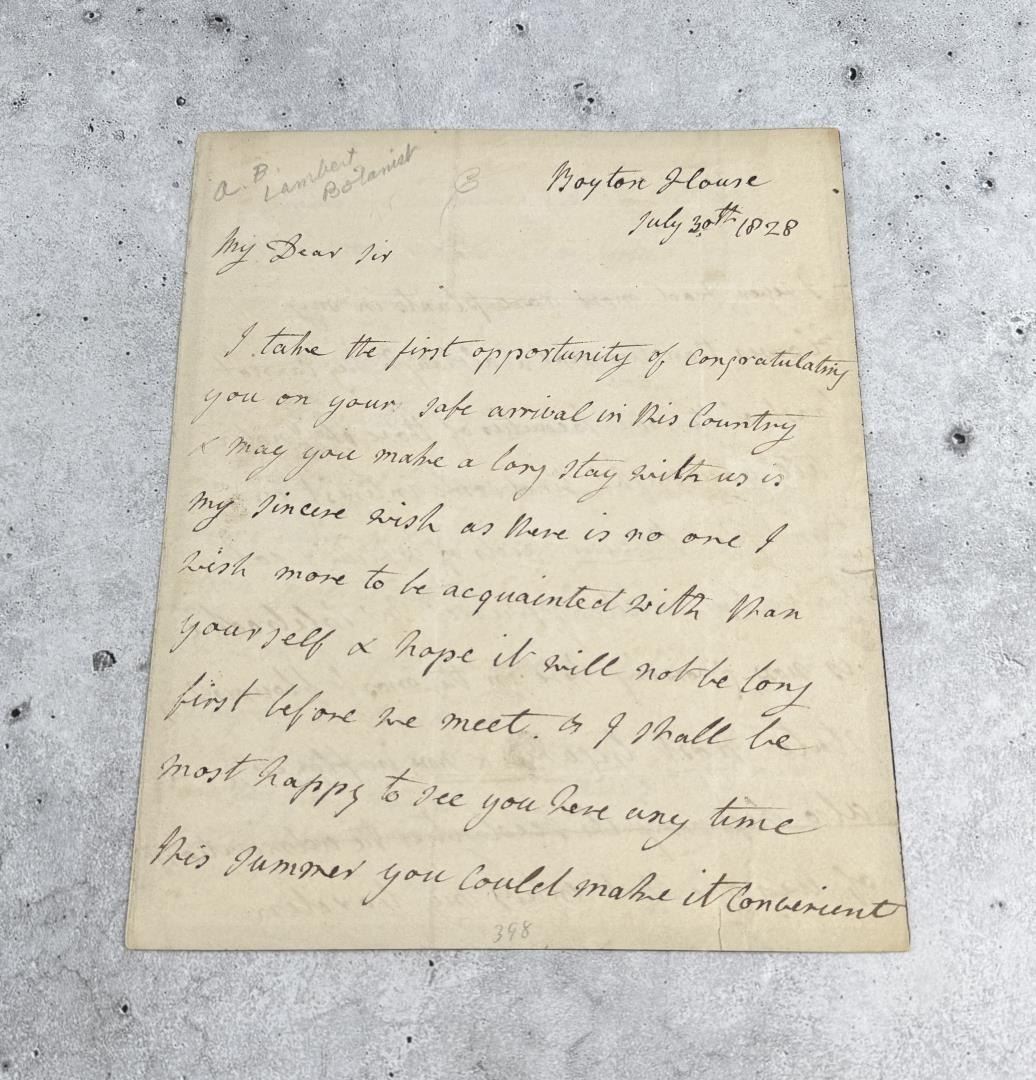 A. B. Lambert
Botanist
Boyton House
July 30th 1828
My Dear Sir
I take the first opportunity of congratulating
you on your safe arrival in this Country
& may you make a long stay with us is
my sincere wish as there is no one I
wish more to be acquainted with than
yourself & hope it will not be long
first before we meet. & I shall be
most happy to see you here any time
this summer you could make it convenient
398